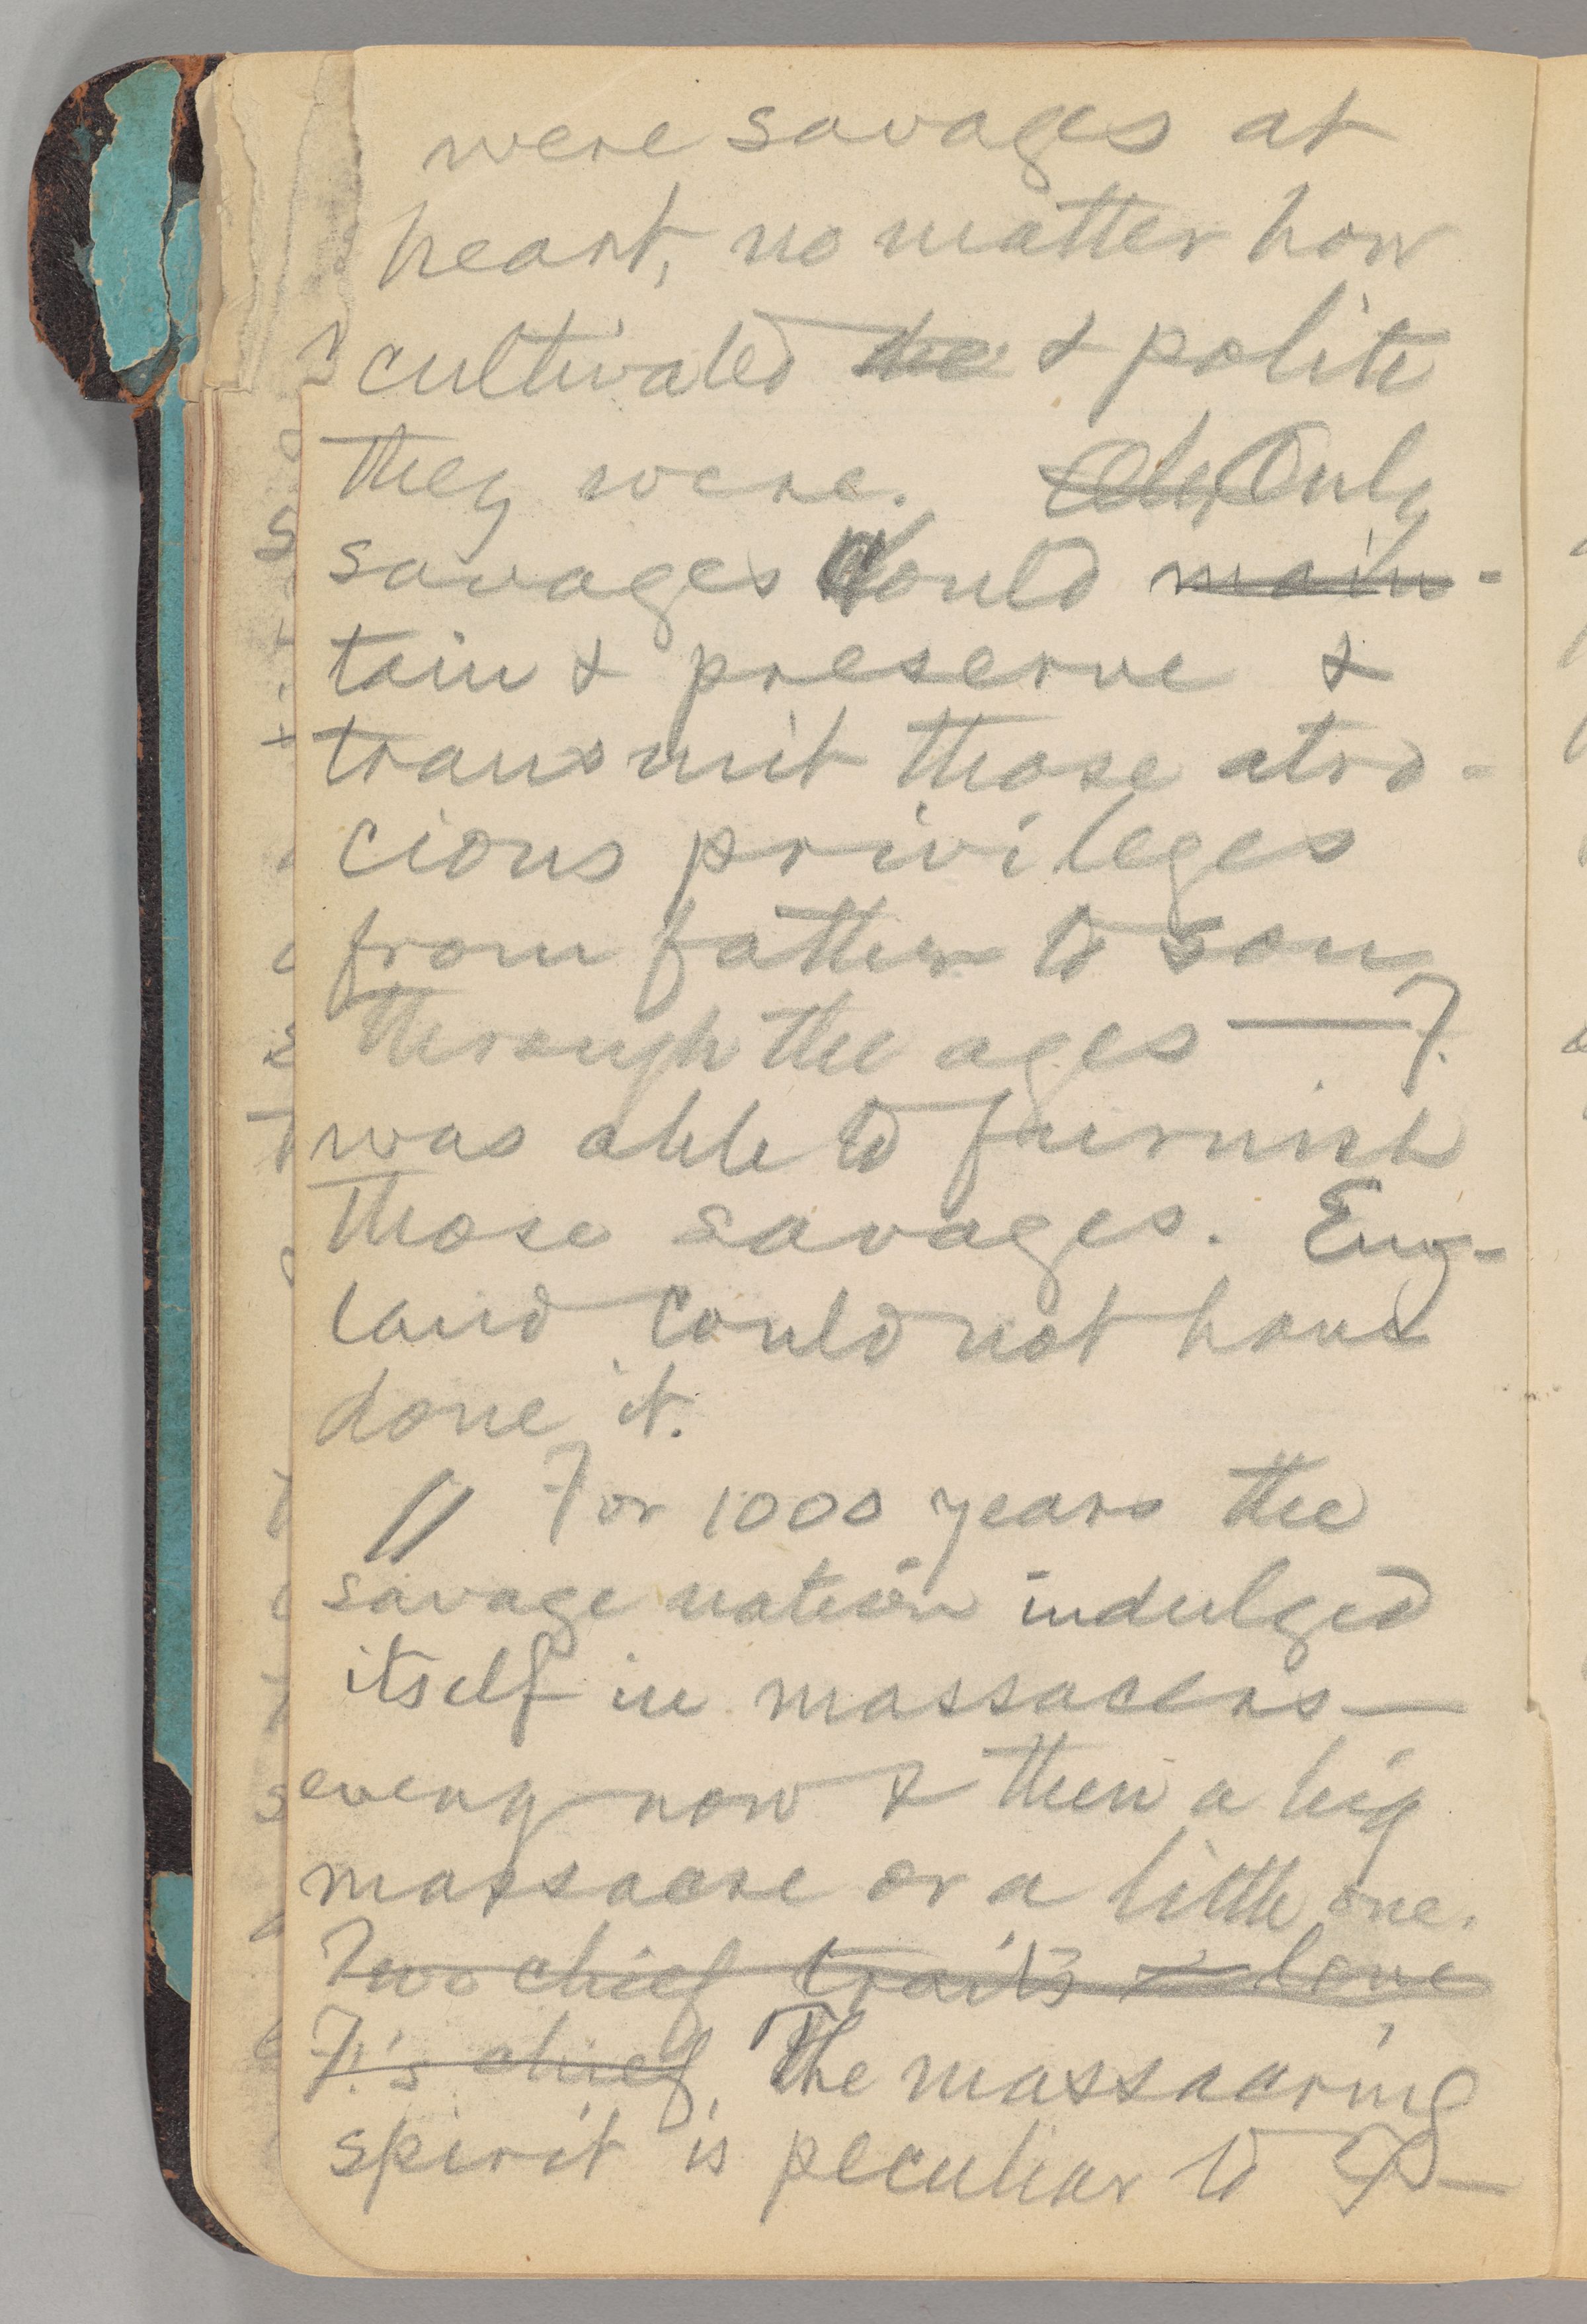 were savages at
heart, no matter how
cultivated he & polite
they were. Oh, Only
savages could main-
tain & preserve &
transmit those atro-
cious privileges
from father to son
through the ages — F.
was able to furnish
those savages. Eng-
land could not have
done it.
// For 1000 years the
savage nation indulged
itself in massacres—
every now & then a big
massacre or a little one.
Two chief traits — love
F.'s chief. The massacring
spirit is peculiar to F—